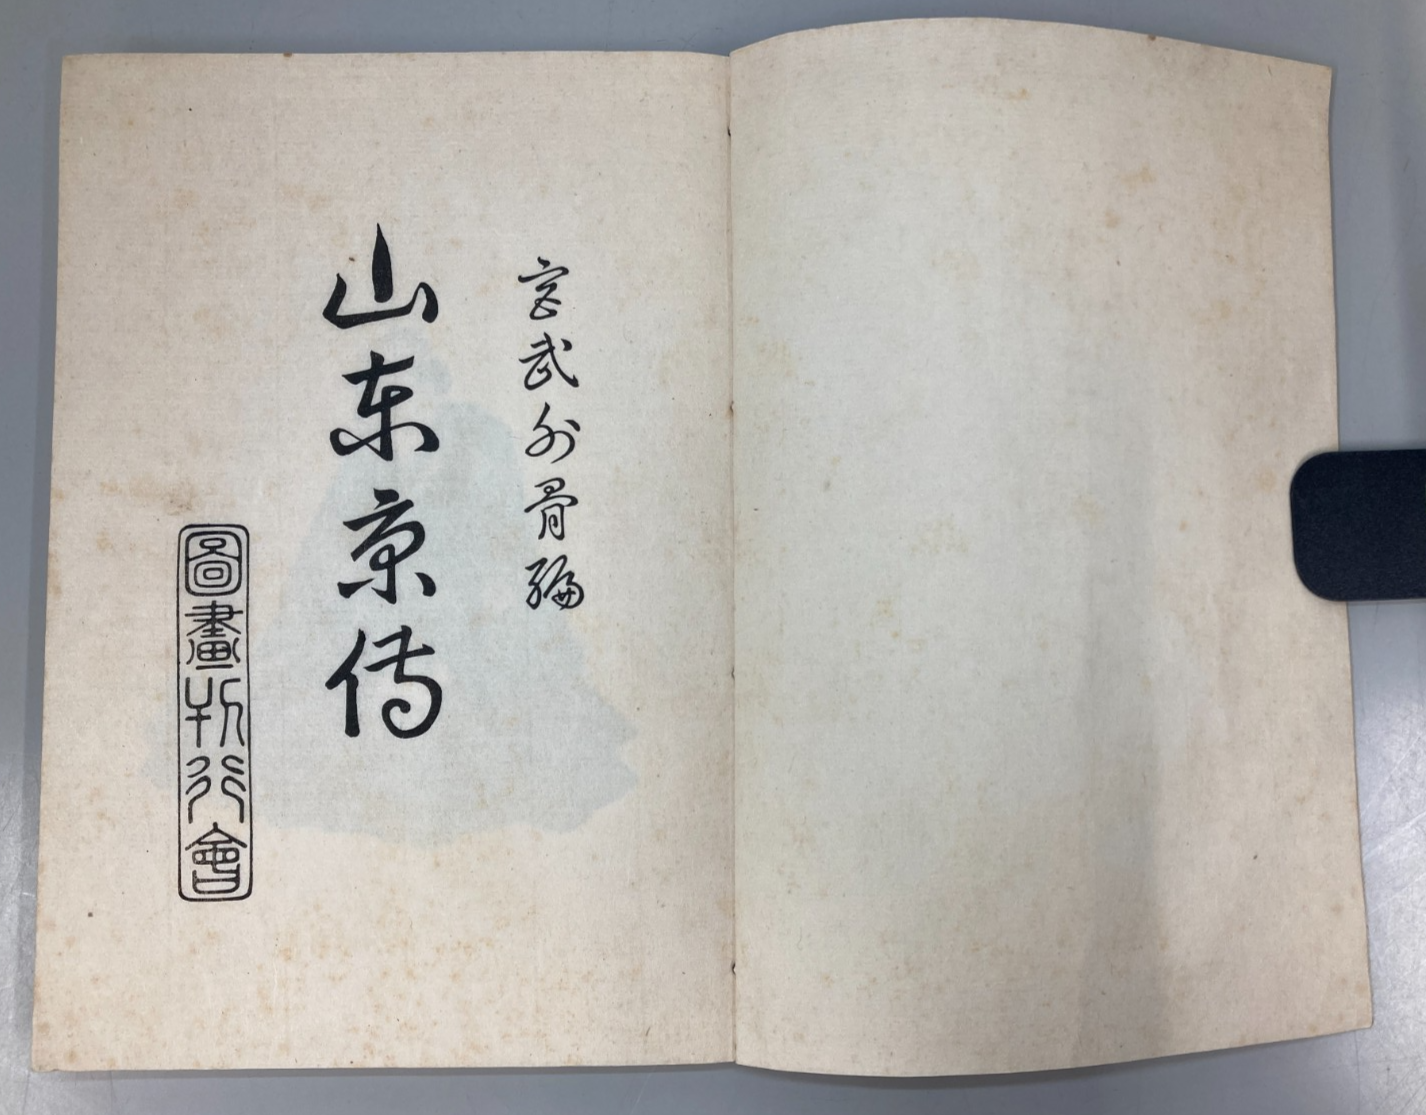 宮武外骨編
山东京传
圖畫刊行會